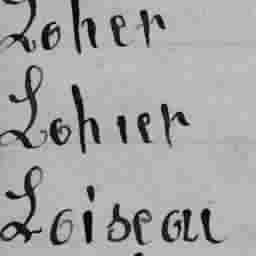 Loher
Lohier
Loiseau